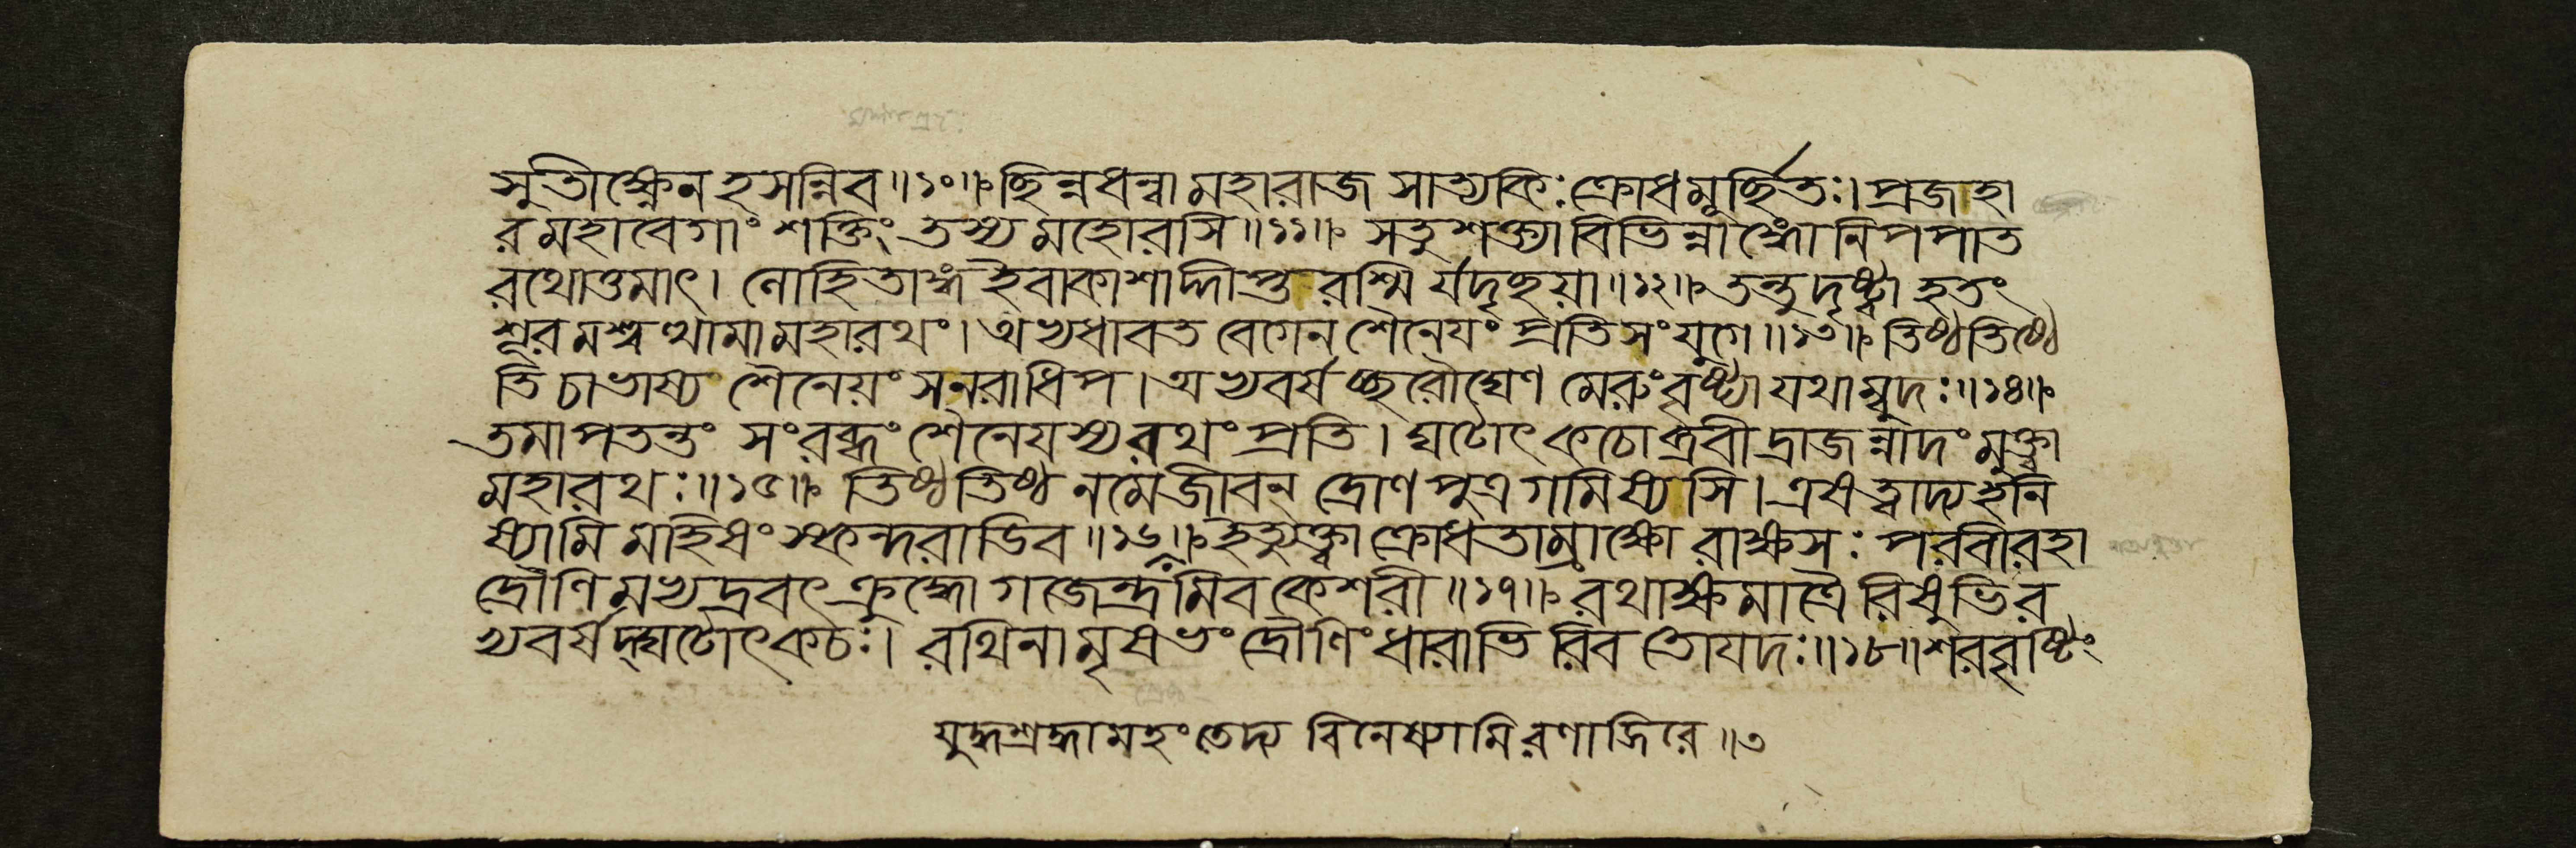 সুতীক্ষ্ণেন হসন্নিব॥১০॥ ছিন্নধন্বা মহারাজ সাত্যকিঃ ক্রোধমূর্ছিতঃ। প্রজহা
র মহাবেগাং শক্তিং তস্য মহোরসি॥১১॥ স তু শক্ত্যা বিভিন্নাঙ্গো নিপপাত
রথোত্তমাৎ। লোহিতাঙ্গ ইবাকাশাদ্দীপ্তরশ্মির্যদৃচ্ছয়া॥১২॥ তন্তু দৃষ্ট্বা হতং
শূরমশ্বত্থামা মহারথং। অভ্যধাবত বেগেন শৈনেযং প্রতি সংযুগে॥১৩॥ তিষ্ঠ তিষ্ঠে
তি চাভাষ্য শৈনেয়ং স নরাধিপ। অভ্যবর্ষচ্ছরৌঘেণ মেরুং বৃষ্ট্যা যথাম্বুদঃ॥১৪॥
তমাপতন্তং সংরব্ধং শৈনেযস্য রথং প্রতি। ঘটোৎকচোব্রবীদ্রাজন্নাদং মুক্ত্বা
মহারথঃ॥১৫॥ তিষ্ঠ তিষ্ঠ ন মে জীবন দ্রোণপুত্র গমিষ্যসি। এষ ত্বাদ্য হনি
ষ্যামি মহিষং স্কন্দরাডিব॥১৬॥ ইত্যুক্ত্বা ক্রোধতাম্রাক্ষো রাক্ষসঃ পরবীরহা
দ্রৌণিমভ্যদ্রবৎ ক্রুদ্ধো গজেন্দ্রমিব কেশরী॥১৭॥ রথাক্ষমাত্রৈরিষুভির
ভ্যবর্ষদ্ঘটোৎকচঃ। রথিনামৃষভং দ্রৌণিং ধারাভিরিব তোযদঃ॥১৮॥ শরবৃষ্টিং
যুদ্ধশ্রদ্ধামহং তেদ্য বিনেষ্যামি রণাজিরে॥৩